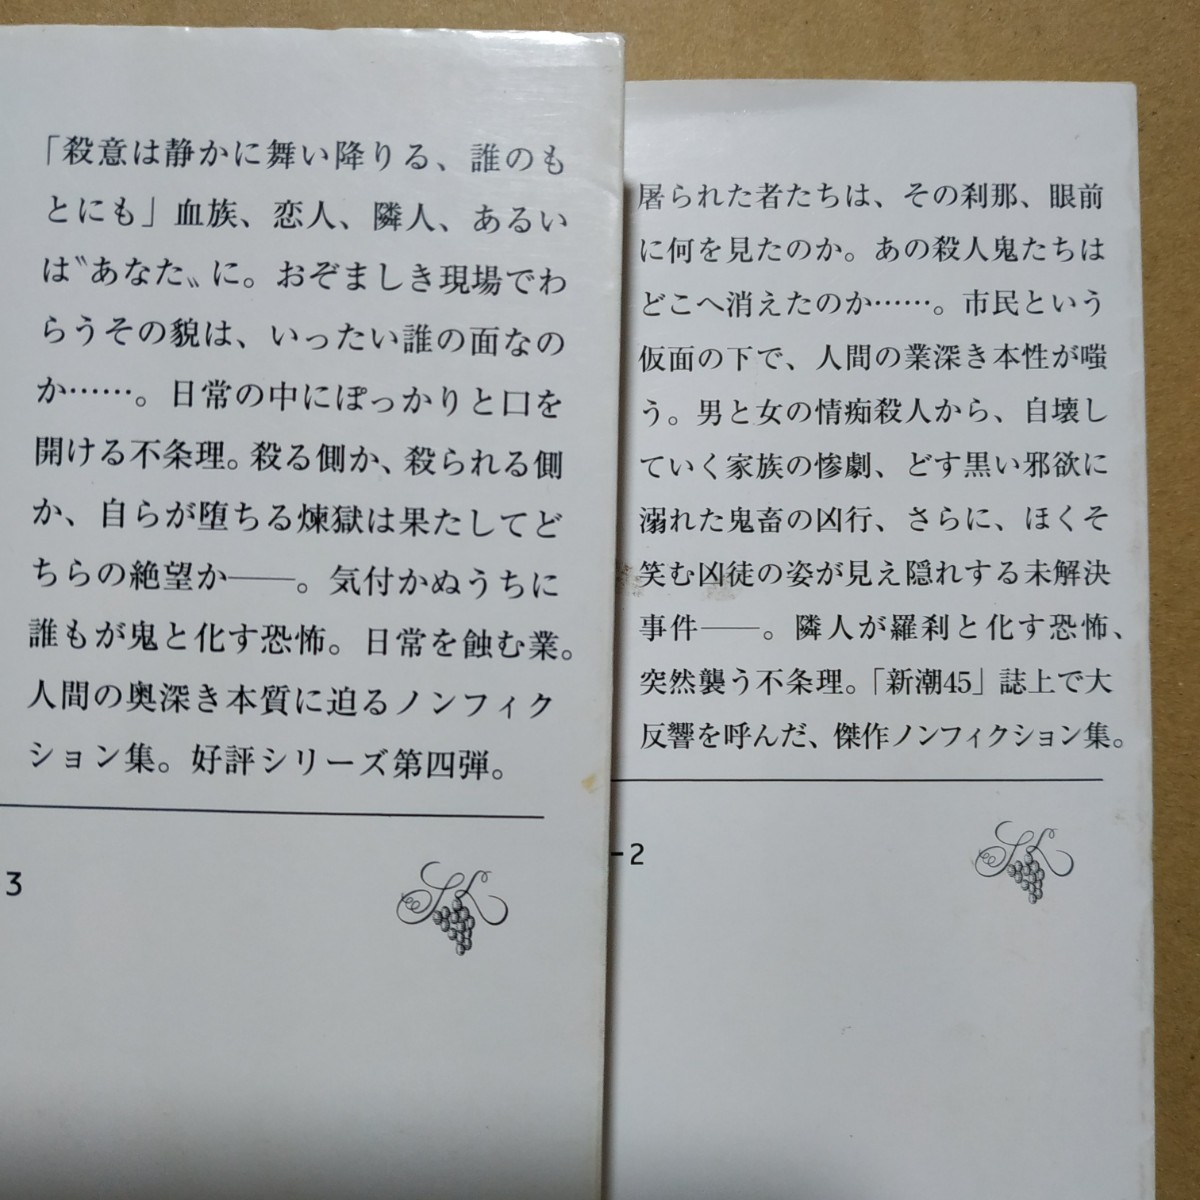 「殺意は静かに舞い降りる、誰のも
とにも」血族、恋人、隣人、あるい
は〝あなた〟に。おぞましき現場でわ
らうその貌は、いったい誰の面なの
か……。日常の中にぽっかりと口を
開ける不条理。殺る側か、殺られる側
か、自らが堕ちる煉獄は果たしてど
ちらの絶望か――。気付かぬうちに
誰もが鬼と化す恐怖。日常を蝕む業。
人間の奥深き本質に迫るノンフィク
ション集。好評シリーズ第四弾。
3
屠られた者たちは、その刹那、眼前
に何を見たのか。あの殺人鬼たちは
どこへ消えたのか……。市民という
仮面の下で、人間の業深き本性が嗤
う。男と女の情痴殺人から、自壊し
ていく家族の惨劇、どす黒い邪欲に
溺れた鬼畜の凶行、さらに、ほくそ
笑む凶徒の姿が見え隠れする未解決
事件――。隣人が羅刹と化す恐怖、
突然襲う不条理。「新潮45」誌上で大
反響を呼んだ、傑作ノンフィクション集。
-2